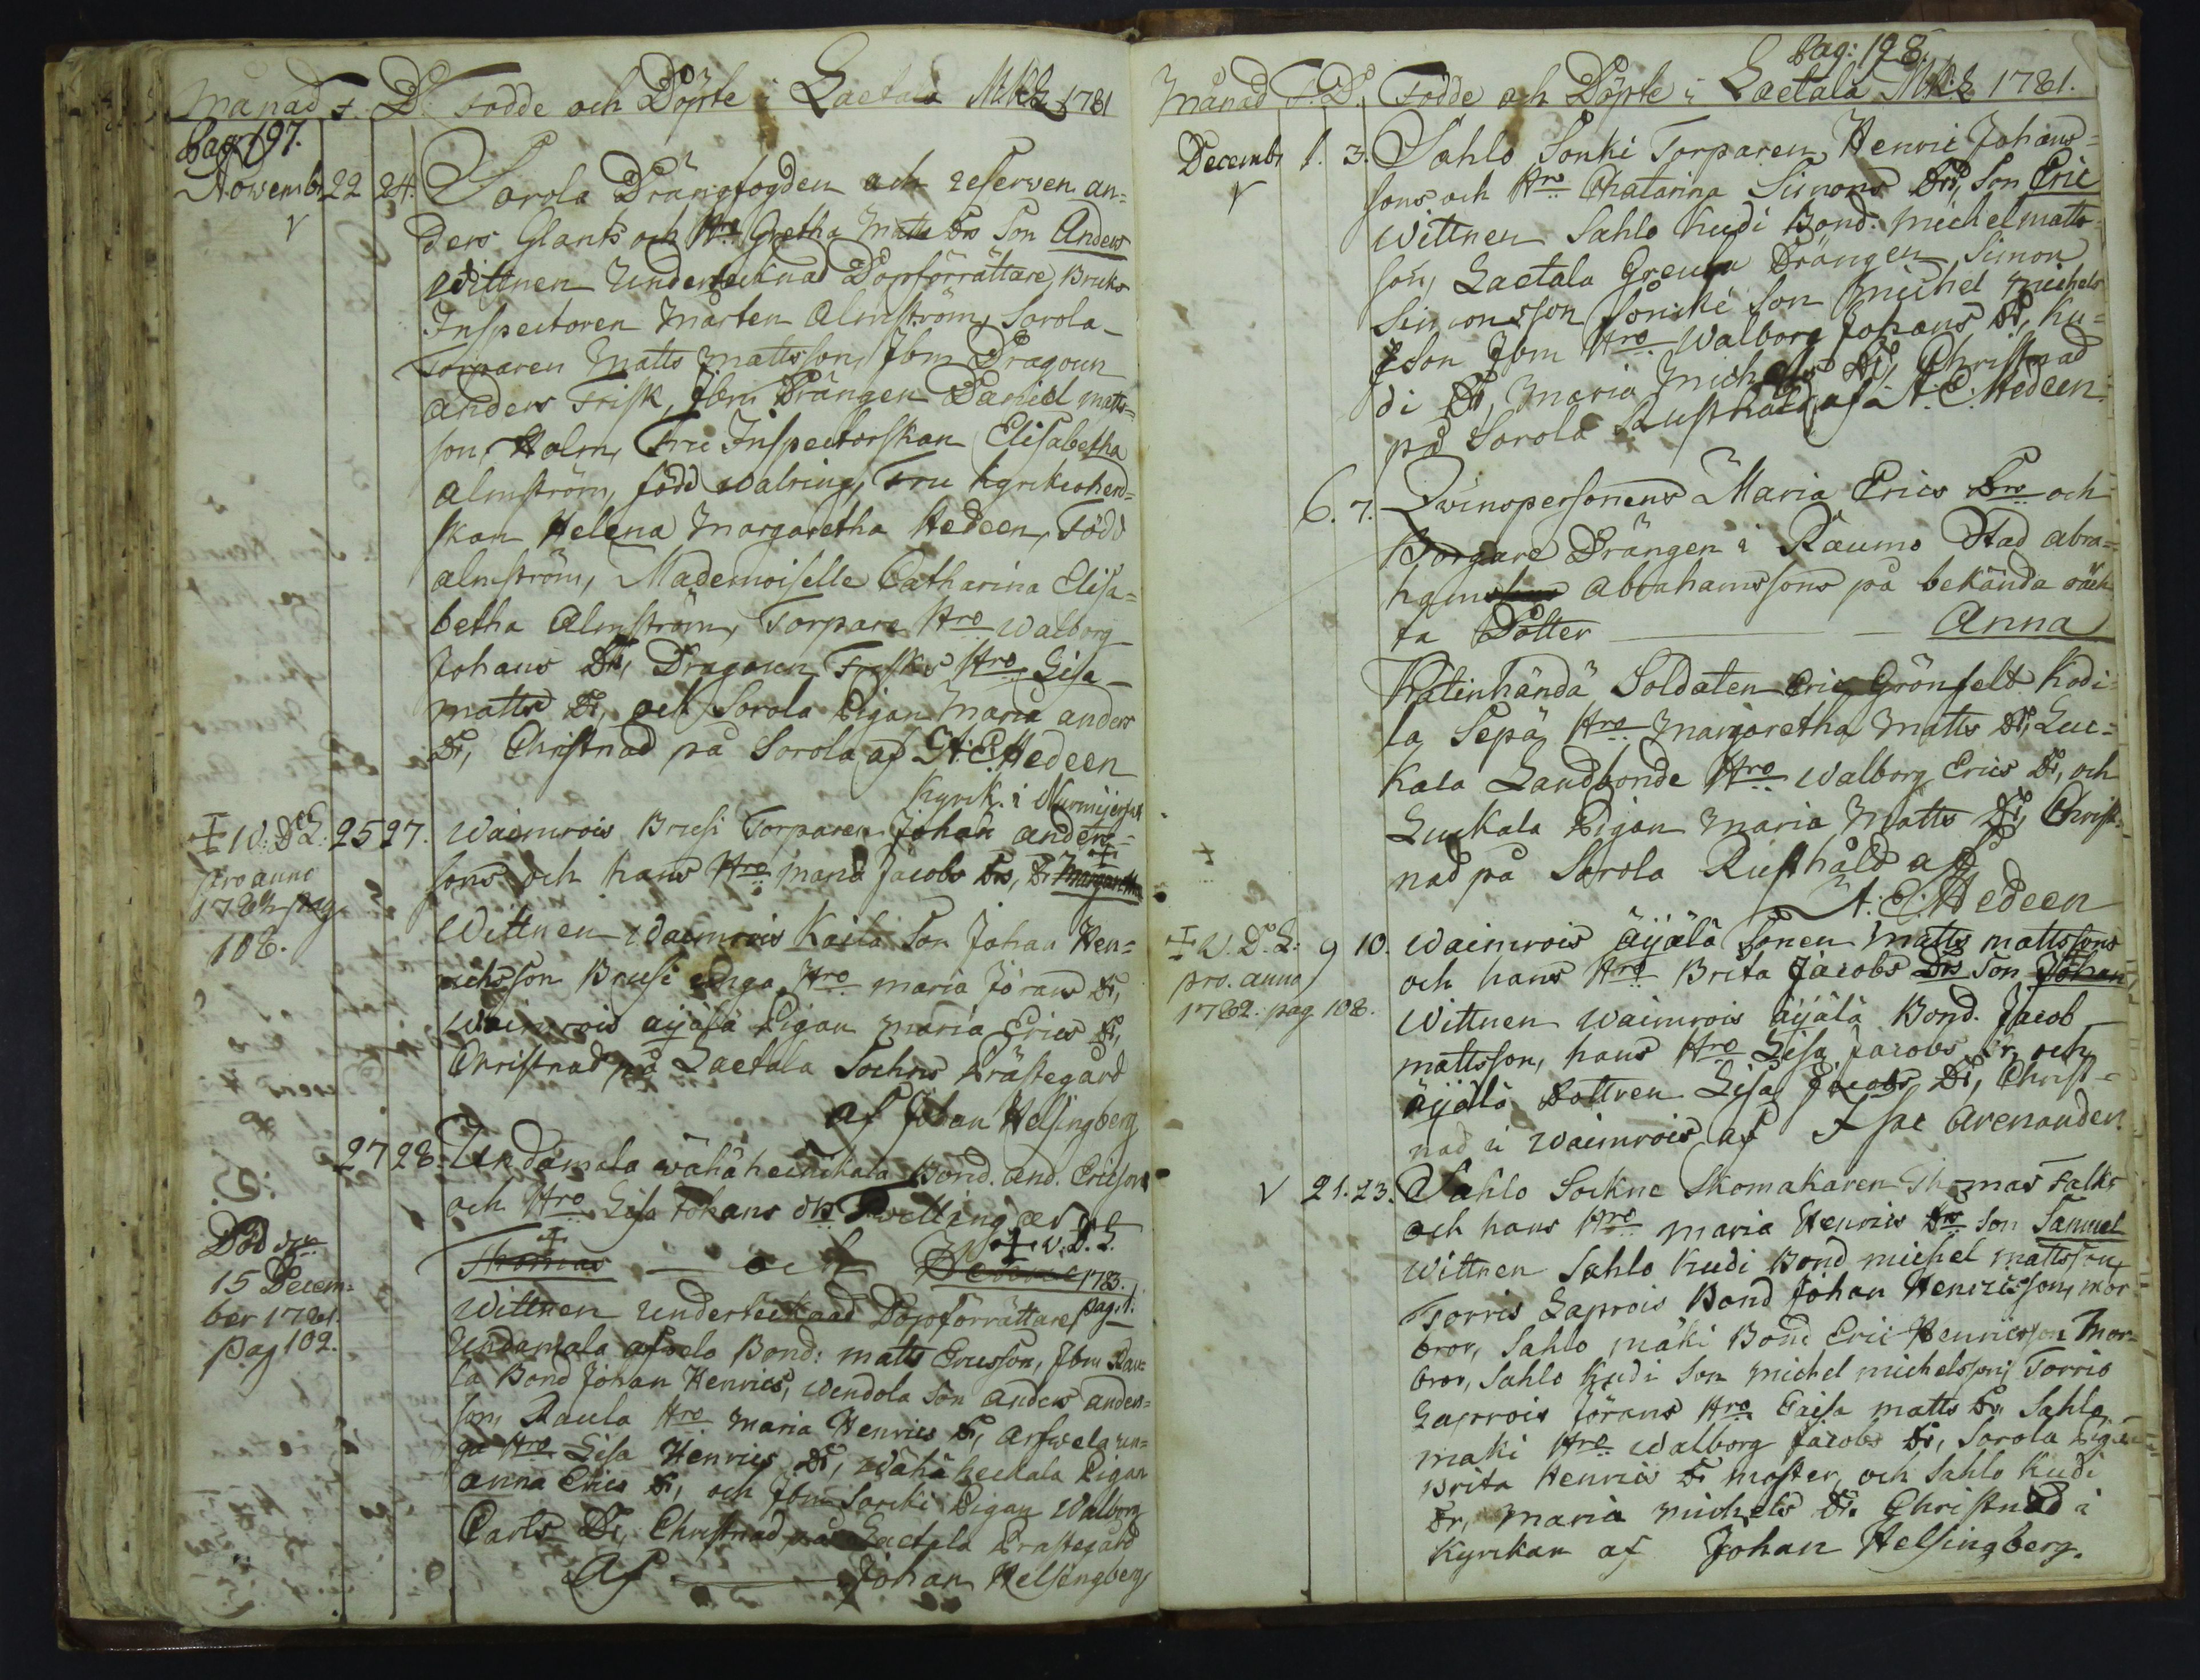 Månad F. D. Födde och Döpte i Laetala MkL 1781
Pag: 197.
Novembr 22 24. Sorola Drängfogden och reserven An=
ders Glants och Hro Gretha Matts Drs Son Anders
Wittnen Undertecknad Dopförrättare, Bruks
Inspectoren Mårten Almström, Sorola
Torparen Matts Mattsson, Jbm Dragoun
Anders Frisk, Jbm Drängen Daniel Matts=
son, Holm, Fru Inspectorskan Elisabetha
Almström, född Walring, Fru Kyrkioherd=
skan Helena Margaretha Hedeen, Född
Almström, Mademoiselle Catharina Elisa=
betha Almström, Torpare Hro Walborg
Johans Dr, Dragoun Frisks Hro Lisa
Matts Dr, och Sorola Pigan Maria Anders
Dr, Christnad på Sorola af A. C. Hedeen
Kyrk. i Nurmijerfvi
W. D. L. pro anno 1782 pag. 108.
25 27. Waimrois Brusi Torparen Johan Anders=
sons och hans Hro Maria Jacobs Drs, Dr Margaretha
Wittnen Waimrois Kaila Son Johan Hen=
richsson Brusi unga Hro Maria Jörans Dr,
Waimrois äijälä Pigan Maria Erics Dr,
Christnad på Laetala Sochns Prästegård
af Johan Helsingberg
27 28. Undamala wähäheickala Bond. And. Ericson
och Hro Lisa Johans drs Twillingar
Thomas — och
W. D. L. 1783. pag. 1.
Död den 15 Decem=
ber 1781. pag 109.
Wittnen Undertecknad Dopförrättare,
Undamala Bond: Matts Ericsson, Jbm Rau=
la Bond Johan Henrics, Wendola Son Anders Anders=
son, Raula Hro Maria Henrics Dr, Arfwela un=
ga Hro Lisa Henrics Dr, Wähä heickala Pigan
Anna Erics Dr, och Jbm Sorcki Pigan Walborg
Carls Dr, Christnad på Laetala Prästegård
Af — Johan Helsingberg
Pag: 198.
Månad F. D. Födde och Döpte i Laetala MkL 1781.
Decembr 1. 3. Sahlo Sonki Torparen Henric Johans=
sons och Hro Chatarina Simons Drs, Son Eric
Wittnen Sahlo Kudi Bond. Michel Matts
son, Laetala Greula Drängen Simon
Simonsson Son Michel Michels
son Jbm Hro Walborg Johans Dr, Ku=
di Dr, Maria Michels Dr, Christnad
på Sorola Rusthåld af A. C. Hedeen.
6. 7. Qwinspersonens Maria Erics Drs och
Borgare Drängen i Raumo Stad Abra=
hams Abrahamssons på bekända oäch
ta Dotter — Anna
Soldaten Eric Grönfelt Kodi=
la Sepä Hro Margaretha Matts Dr, Luc=
kala Landbonde Hro Walborg Erics Dr, och
Luckala Pigan Maria Matts Dr, Christ=
nad på Sorola Rusthåld af
A: C: Hedeen
W. D. L. pro. anno 1782. pag 108.
9 10. Waimrois äijälä Sonen Matts Mattssons
och hans Hro Brita Jacobs Drs Son Johan
Wittnen Waimrois äijälä Bond. Jacob
Mattsson, hans Hro Lisa Jacobs Dr, och
äijälä Dottren Lisa Jacobs Dr, Christ=
nad i Waimrois af Isac Arenander.
21. 23. Sahlo Sockne Skomakaren Thomas Falks
och hans Hro Maria Henrics Drs Son Samuel
Wittnen Sahlo Kudi Bond Michel Mattsson,
Torris Laprois Bond Johan Henricsson, mor
bror, Sahlo mäki Bond Eric Henricsson Mor=
bror, Sahlo Kudi Son Michel Michelsson, Torris
Laprois Jörans Hro Caisa Matts Dr, Sahlo
mäki Hro Walborg Jacobs Dr, Sorola Pigan
Brita Henrics Dr moster, och Sahlo Kudi
Dr, Maria Michels Dr. Christnad i
Kyrckan af Johan Helsingberg.